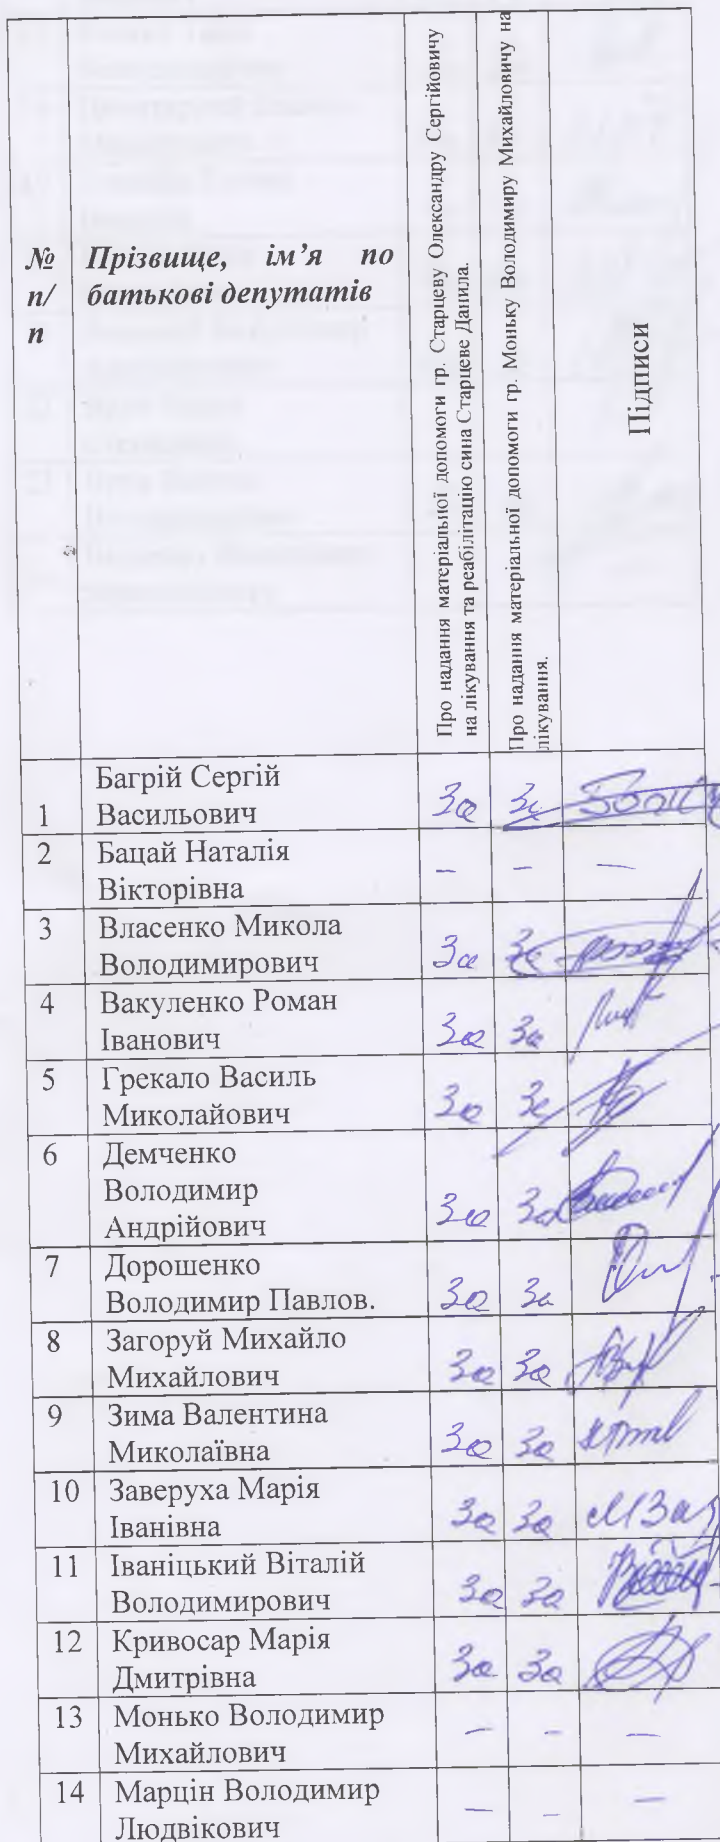 № п/п
Прізвище, ім’я по батькові депутатів
Про надання матеріальної допомоги гр. Старцеву Олександру Сергійовичу
на лікування та реабілітацію сина Старцеве Данила.
Про надання матеріальної допомоги гр. Моньку Володимиру Михайловичу на
лікування.
Підписи
Багрій Сергій
1 Васильович За За
2 Бацай Наталія
Вікторівна – – –
3 Власенко Микола
Володимирович За За
4 Вакуленко Роман
Іванович За За
5 Грекало Василь
Миколайович За За
6 Демченко
Володимир
Андрійович За За
7 Дорошенко
Володимир Павлов. За За
8 Загоруй Михайло
Михайлович За За
9 Зима Валентина
Миколаївна За За
10 Заверуха Марія
Іванівна За За
11 Іваніцький Віталій
Володимирович За За
12 Кривосар Марія
Дмитрівна За За
13 Монько Володимир
Михайлович – – –
14 Марцін Володимир
Людвікович – – –